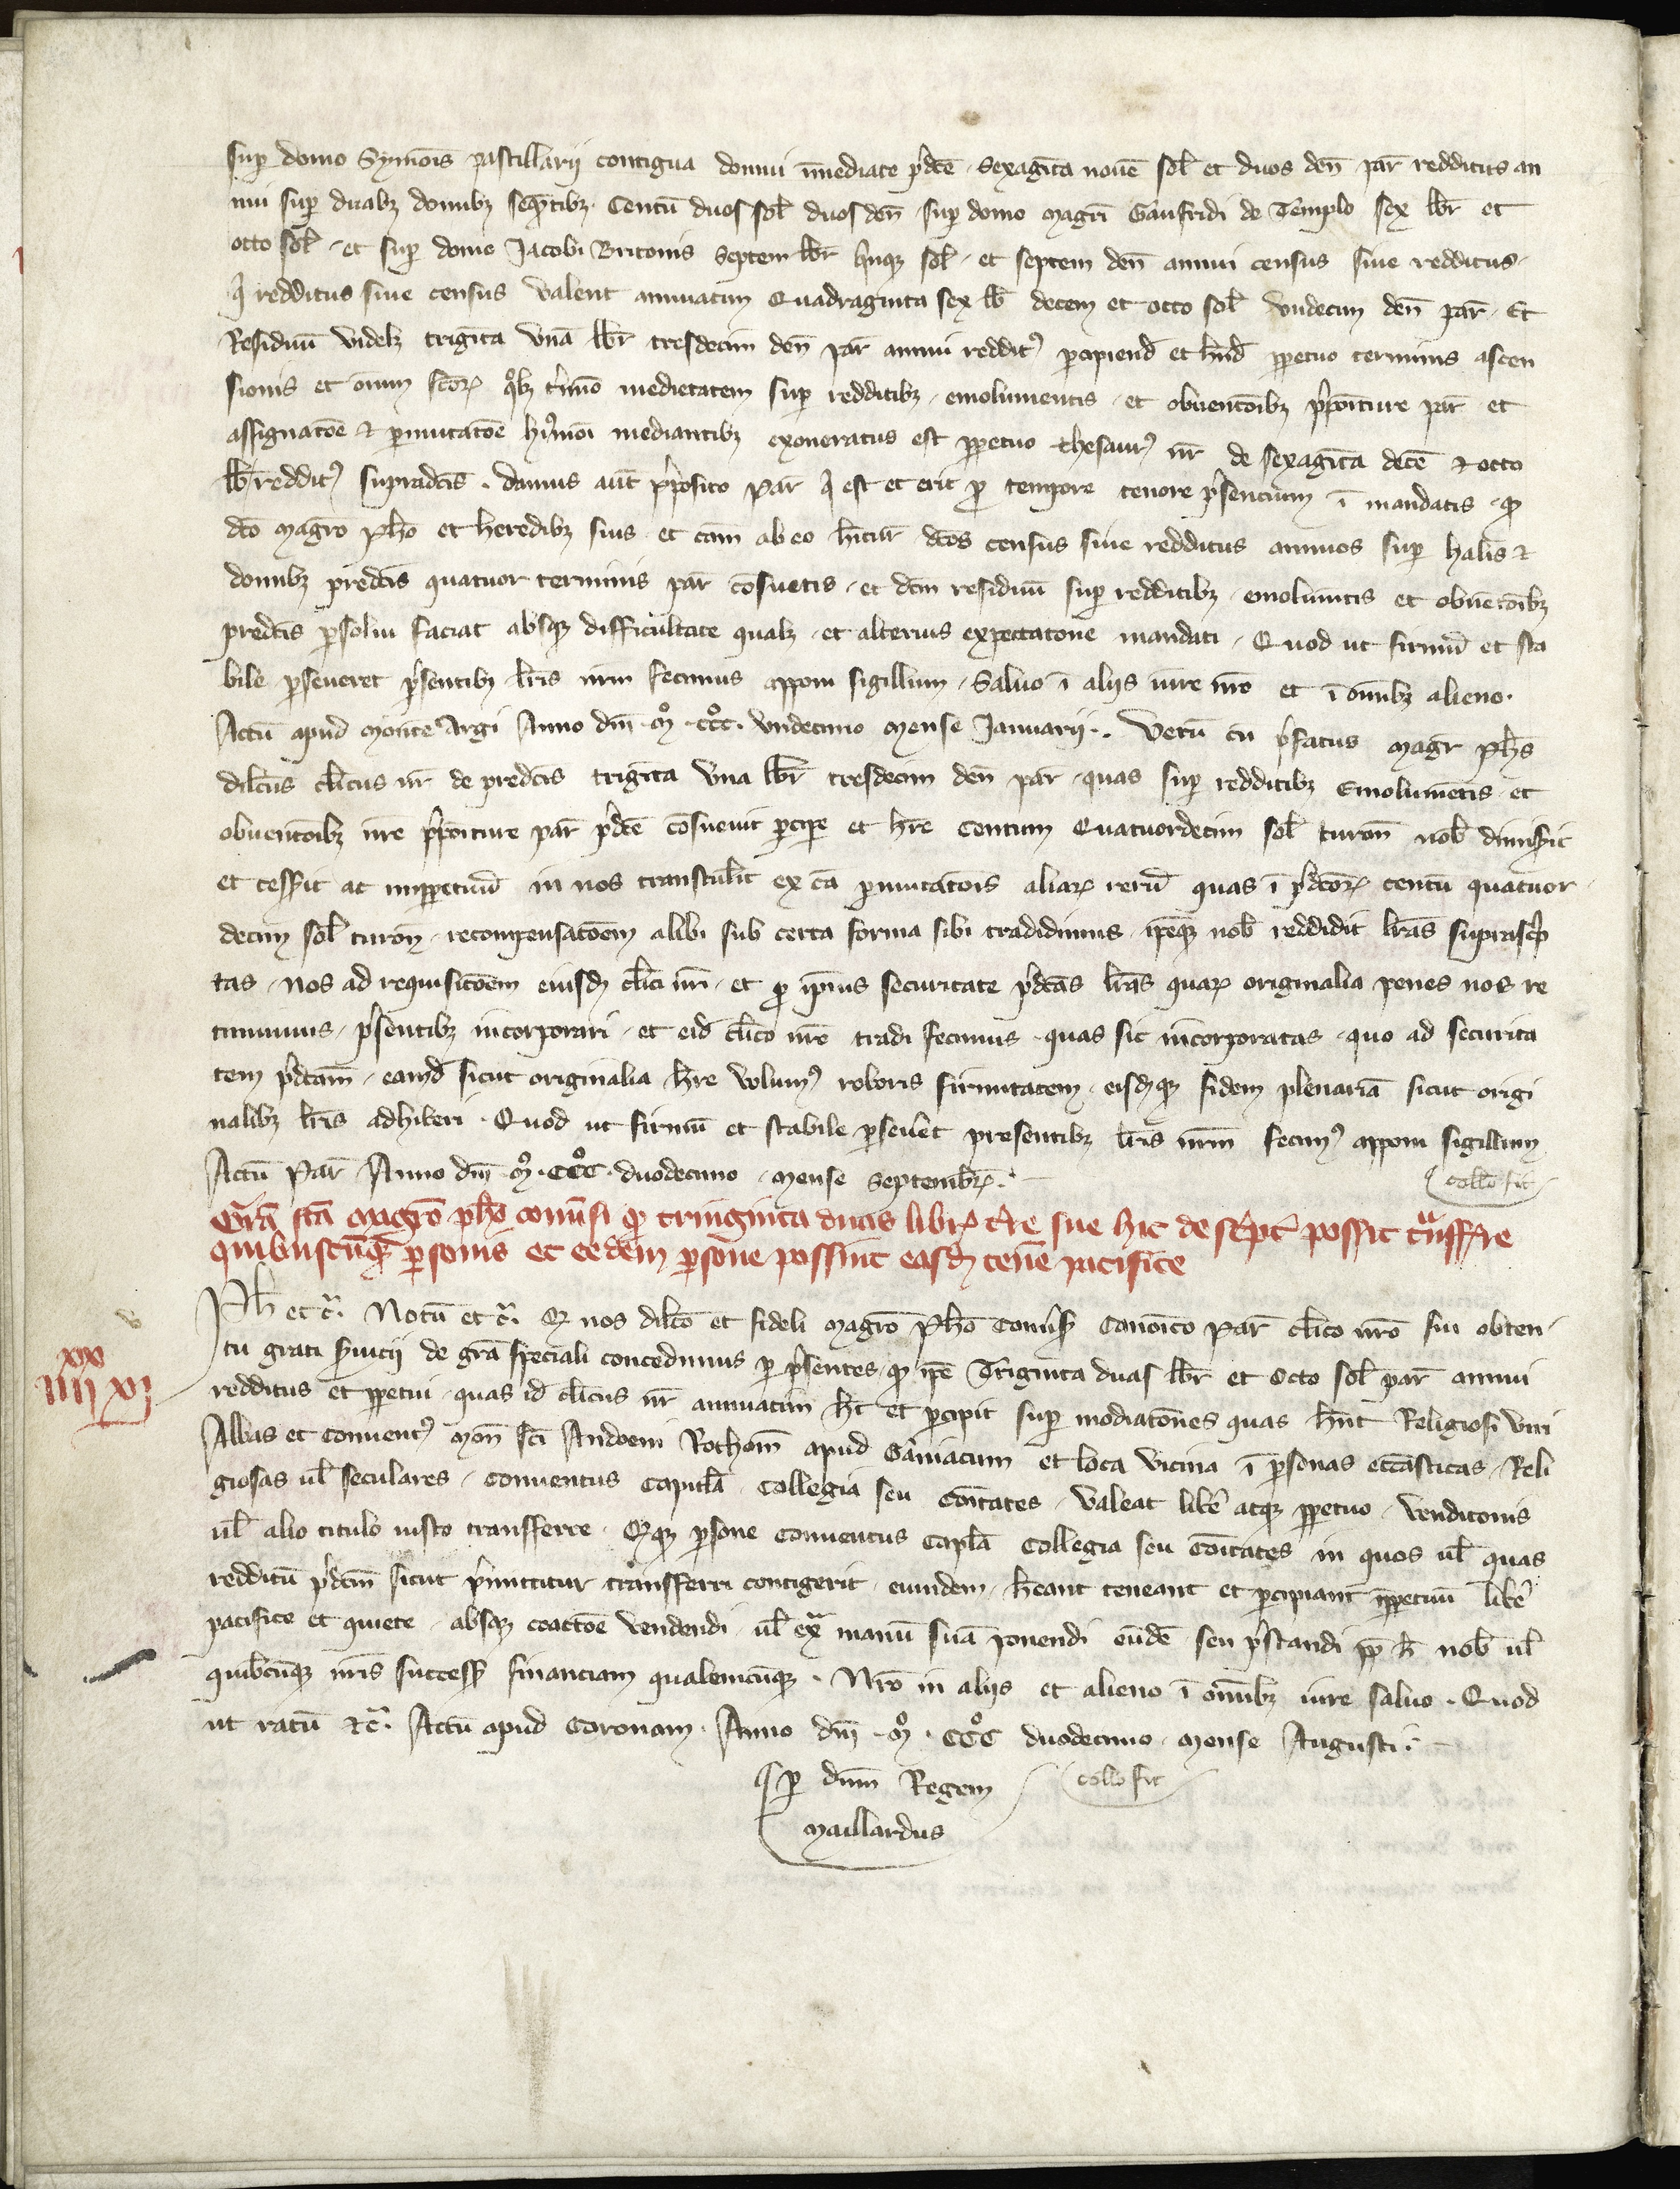 sup domo Symōis pastillarij contigua domui īmediate p̄dc̄e . Sexagīta novē sol̄ et duos den̄ par̄ redditus an
nui sup duabȝ domibȝ seq̄ntibȝ . Centū duos sol̄ duos den̄ sup domo magr̄i Gaufridi de Templo sex lb̄r et
octo sol̄ . et sup domo Jacobi Britonis septem lb̄r q̄nqȝ sol̄ . et septem den̄ annui census siue redditus .
q̄ redditus siue census valent annuatim Quadraginta sex lb̄ decem et octo sol̄ undecim den̄ par̄ . Et
Residuū videlȝ trigīta unā lb̄r tresdecim den̄ par̄ annui reddit9 pcipiend̄ et hn̄d̄ ppetuo terminis ascen
sionis et om̄im sc̄orꝝ qͦlȝ t̄mīo medietatem sup redditibȝ . emolumentis . et obuentōibȝ p̄poīture par̄ et
assignatōe ⁊ pmutatōe hmōi mediantibȝ exoneratus est ppetuo thesaur9 nr̄ de sexagīta decē ⁊ octo
lb̄r reddit9 supradc̄is . damus aūt p̄posito par̄ q̄ est et erit p tempore tenore p̄sencium ī mandatis . qꝫ
dc̄o magr̄o Ph̄o et heredibȝ suis . et cām ab eo hn̄tib̄ dc̄os census siue redditus annuos sup halis ⁊
domibȝ predc̄is quatuor terminis par̄ cōsuetis . et dc̄m residuū sup redditibȝ . emolumtis et obuētōibȝ
predc̄is psolui faciat absqȝ difficultate qualȝ . et alterius expectatone mandati . Quod ut firmū et sta
bile pseueret p̄sentibȝ lr̄is nr̄m fecimus apponi sigillum . Saluo ī alijs iure nr̄o et ī om̄ibȝ alieno .
Actū apud Montē Argi Anno dn̄i . mͦ . cccͦ . undecimo Mense Januarij .. Verū cū p̄fatus magr̄ Ph̄s
dilc̄us cl̄icus nr̄ de predc̄is trigīta una lb̄r tresdecim den̄ par̄ . quas sup redditibȝ Emolumētis . et
obuentōibȝ iure p̄poīture par̄ p̄dc̄e cōsueuit pcipe et hr̄e Centum Quatuordecim sol̄ turon̄ nob̄ dimisit
et cessit ac imppetuū in nos transtulit ex cā pmutatōis aliarꝝ rerū quas ī p̄dc̄orꝝ centū quatuor
decim sol̄ turon̄ . recompensatōem alibi sub certa forma sibi tradidimus . ip̄eqȝ nob̄ reddidit lr̄as suprascͥp
tas . Nos ad requisitōem eiusdē cl̄ici nr̄i . et p ip̄ius securitate p̄dc̄as lr̄as quarꝝ originalia penes nos re
tinuimus . p̄sentibȝ incorporari . et eid̄ cl̄ico nr̄o tradi fecimus . quas sic incorporatas . quo ad securita
tem p̄dc̄am . eamd̄ sicut originalia hr̄e volum9 roboris firmitatem . eisdēqȝ fidem plenariā sicut origi
nalibȝ lr̄is adhiberi . Quod ut firmū et stabile pseueret presentibȝ lr̄is nr̄m fecim9 apponi sigillum
Actū Par̄ Anno dn̄i mͦ . cccͦ . duodecimo . Mense Septembrꝝ .
collō fit
Gr̄a fc̄a magr̄o ph̄o conūsi qꝫ tringinta duas librꝝ t̄re sue hic descͥpt̄ possit tͣnsff̄re
quibuscūqȝ psonis et eedem psone possint easdē tenēe pacifice
xx
iiii xi
Ph̄ et cͣ . Notū et cͣ . Qȝ nos dilc̄o et fideli magr̄o Ph̄o Conūs̄ Canōico Par̄ cl̄ico nr̄o sui obten
tu grati s̄uicij de gr̄a speciali concedimus p p̄sentes . qꝫ ip̄e Triginta duas lb̄r et octo sol̄ par̄ annui
redditus et ppetui . quas id̄ cl̄icus nr̄ annuatim h̄t et pcipit sup modiatōnes quas hn̄t Religiosi viri
Abbas et Conuent9 mon̄ sc̄i Andoeni Rothom̄ apud Gāniacum et loca vicina ī psonas ecc̄asticas . Reli
giosas ul̄ seculares . conuentus capitl̄a . collegia seu cōitates . valeat libē atqȝ ppetuo . venditonis
ul̄ alio titulo iusto transferre . Qȝqȝ psone conuentus capl̄a collegia seu cōitates in quos ul̄ quas
redditū p̄dc̄m sicut p̄mittitur transfferri contigerit . eumdem . hēant teneant et pcipiant īppetuū libē
pacifice et quiete . absqȝ coactōe vendendi . ul̄ exͣ manū suā ponendi eūdē seu p̄standi pp h̄ nob̄ ul̄
quibuscūqȝ nr̄is success̄ financiam qualemcūqȝ . Nr̄o in alijs et alieno ī om̄ibȝ iure saluo . Quod
ut ratū ⁊cͣ . Actū apud Coronam . Anno dn̄i . mͦ . cccͦ duodecimo . Mense Augusti .
p dn̄m Regem collō fit
Maillardus